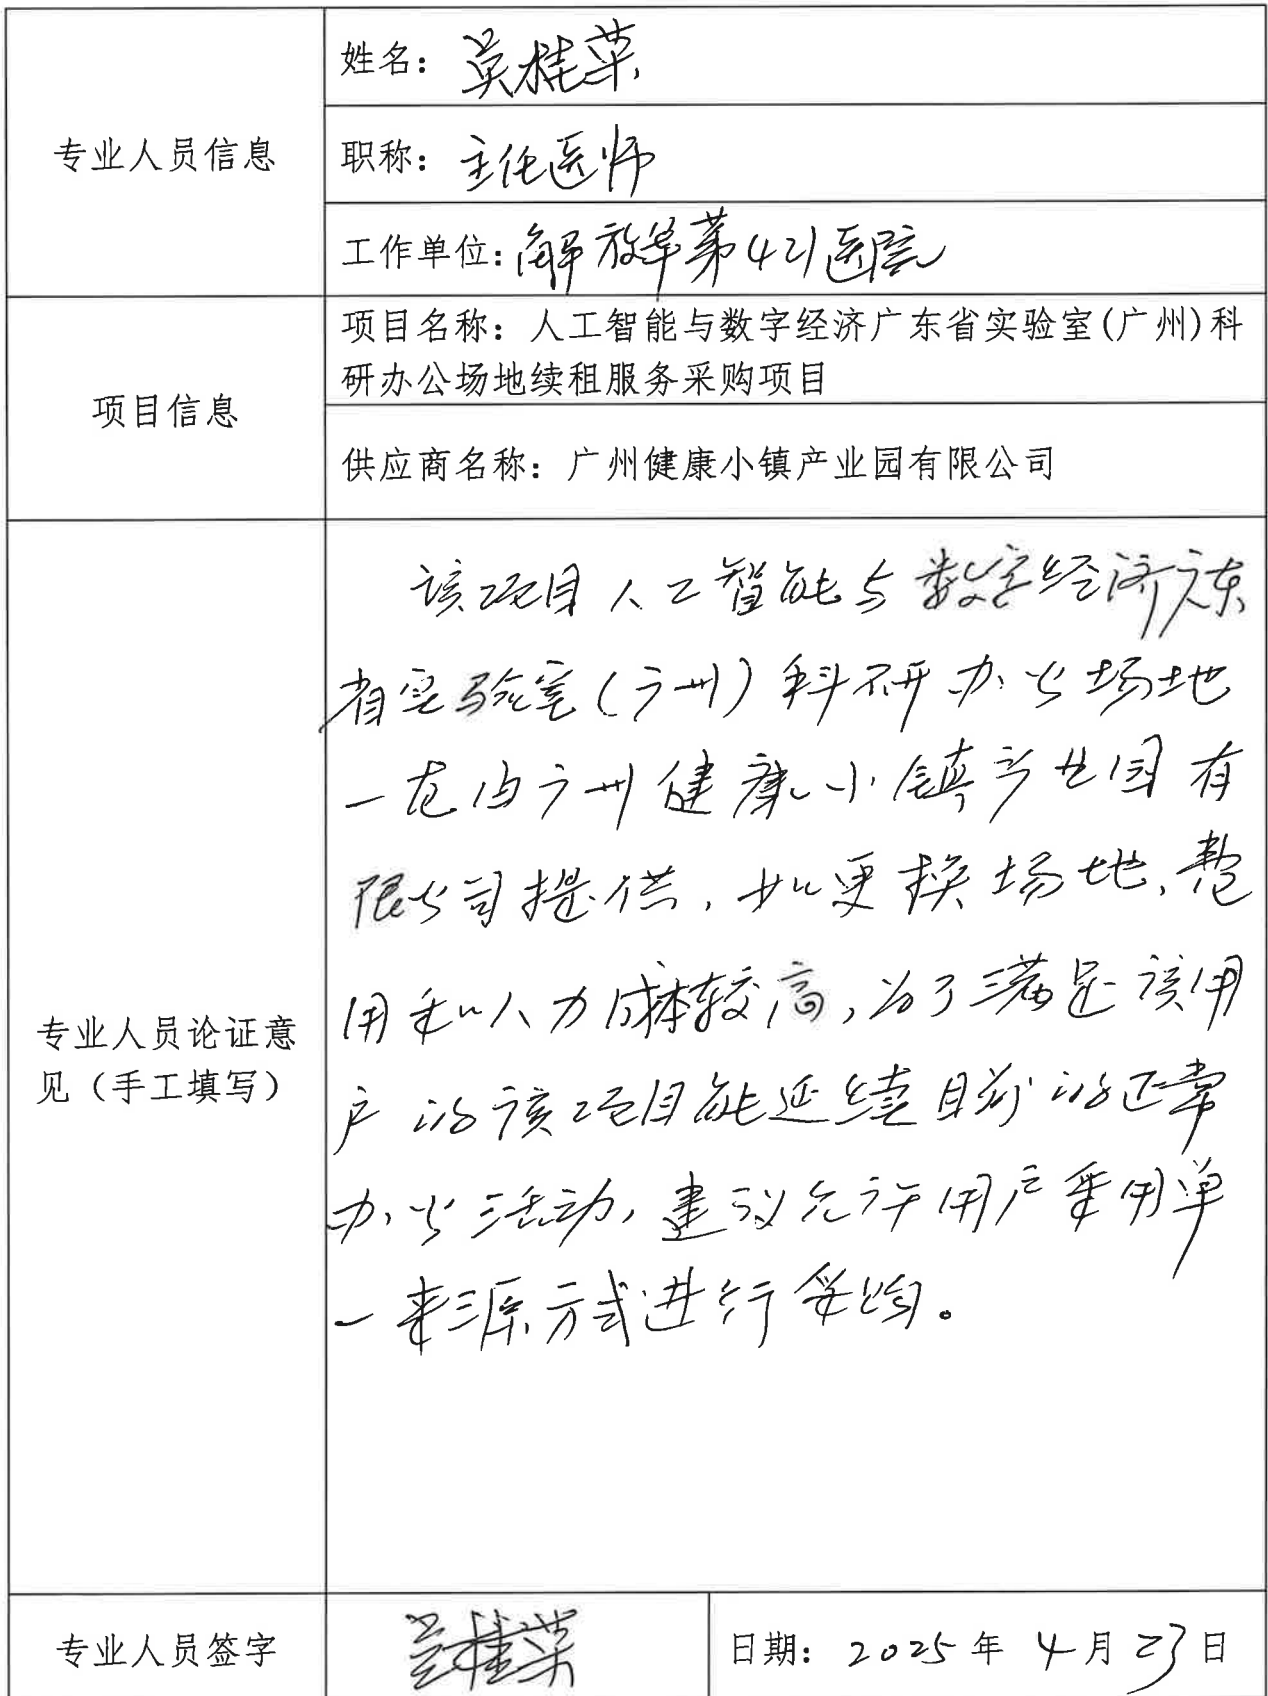 姓名：吴桂荣
专业人员信息
职称：主任医师
工作单位：解放军第421医院
项目名称：人工智能与数字经济广东省实验室(广州)科
研办公场地续租服务采购项目
项目信息
供应商名称：广州健康小镇产业园有限公司
该项目人工智能与数字经济广东
省实验室(广州)科研办公场地
一直由广州健康小镇产业园有
限公司提供，如更换场地，费
用和人力成本较高，为了满足该用
户的该项目能延续目前的正常
办公活动，建议允许用户采用单
一来源方式进行采购。
专业人员论证意
见（手工填写）
专业人员签字
吴桂荣
日期：2025年4月23日